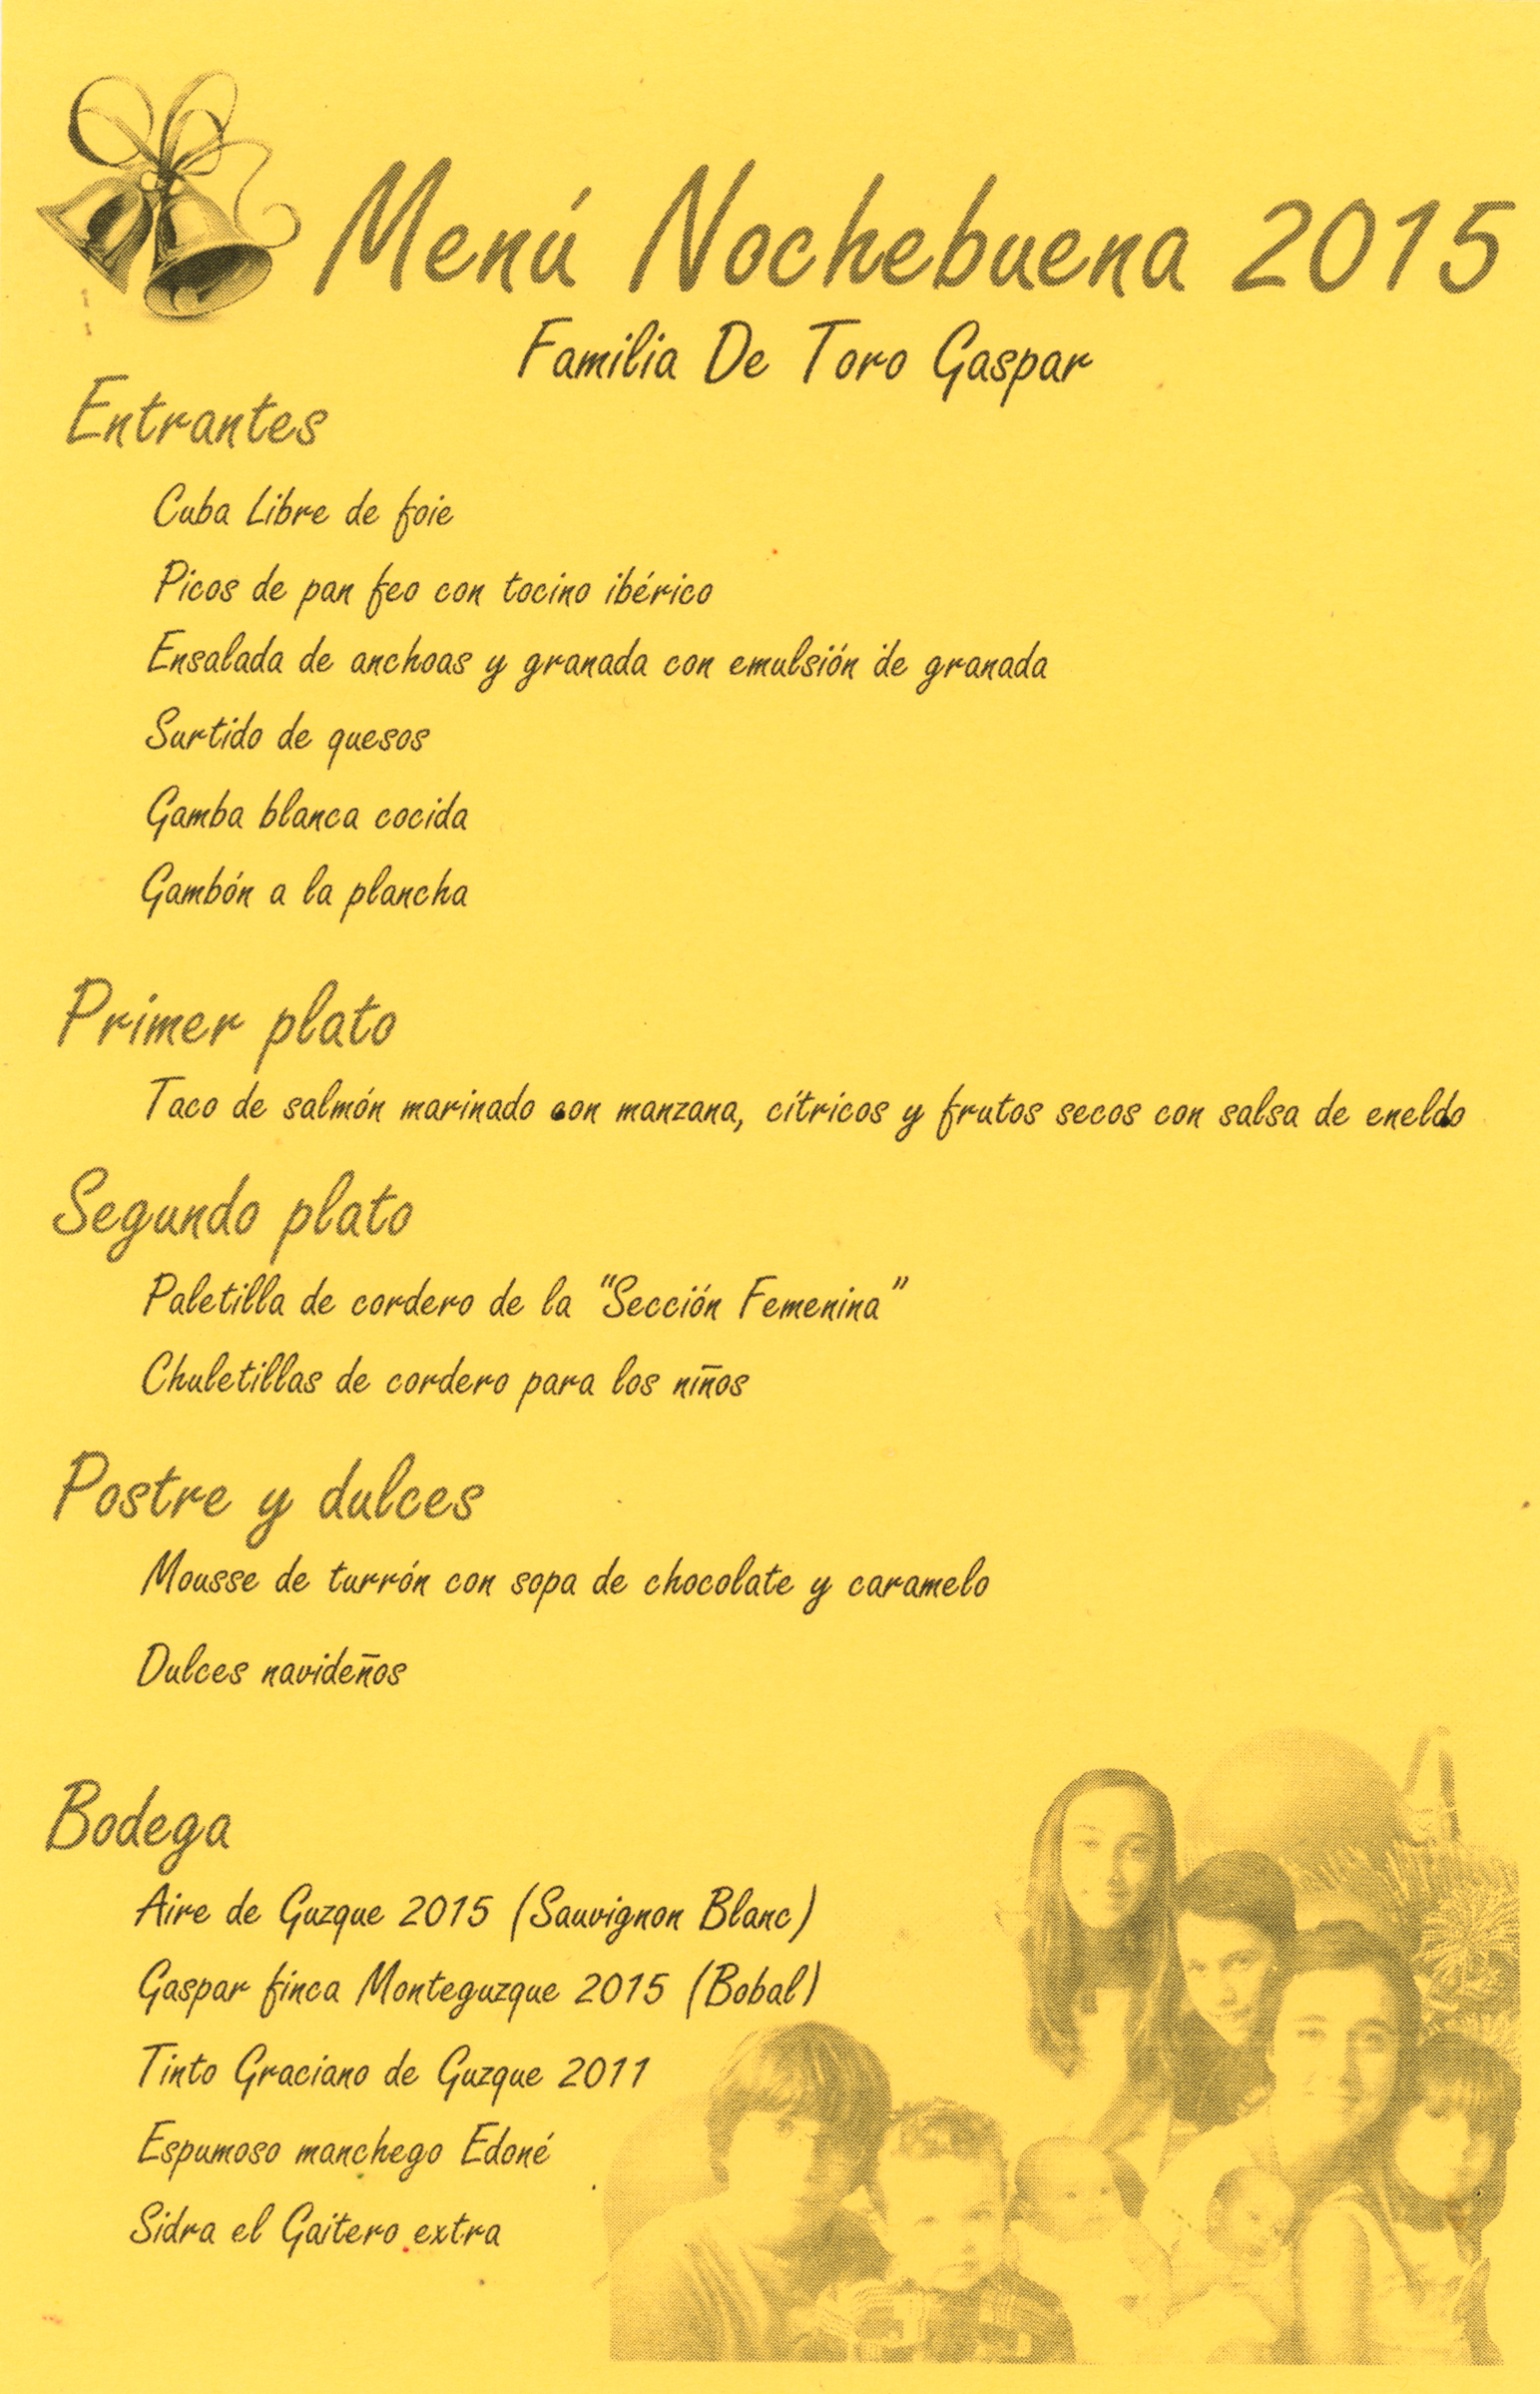 Menú Nochebuena 2015
Familia De Toro Gaspar
Entrantes
Cuba Libre de foie
Picos de pan feo con tocino ibérico
Ensalada de anchoas y granada con emulsión de granada
Surtido de quesos
Gamba blanca cocida
Gambón a la plancha
Primer plato
Taco de salmón marinado con manzana, cítricos y frutos secos con salsa de eneldo
Segundo plato
Paletilla de cordero de la “Sección Femenina”
Chuletillas de cordero para los niños
Postre y dulces
Mousse de turrón con sopa de chocolate y caramelo
Dulces navideños
Bodega
Aire de Guzque 2015 (Sauvignon Blanc)
Gaspar finca Monteguzque 2015 (Bobal)
Tinto Graciano de Guzque 2011
Espumoso manchego Edoné
Sidra el Gaitero extra